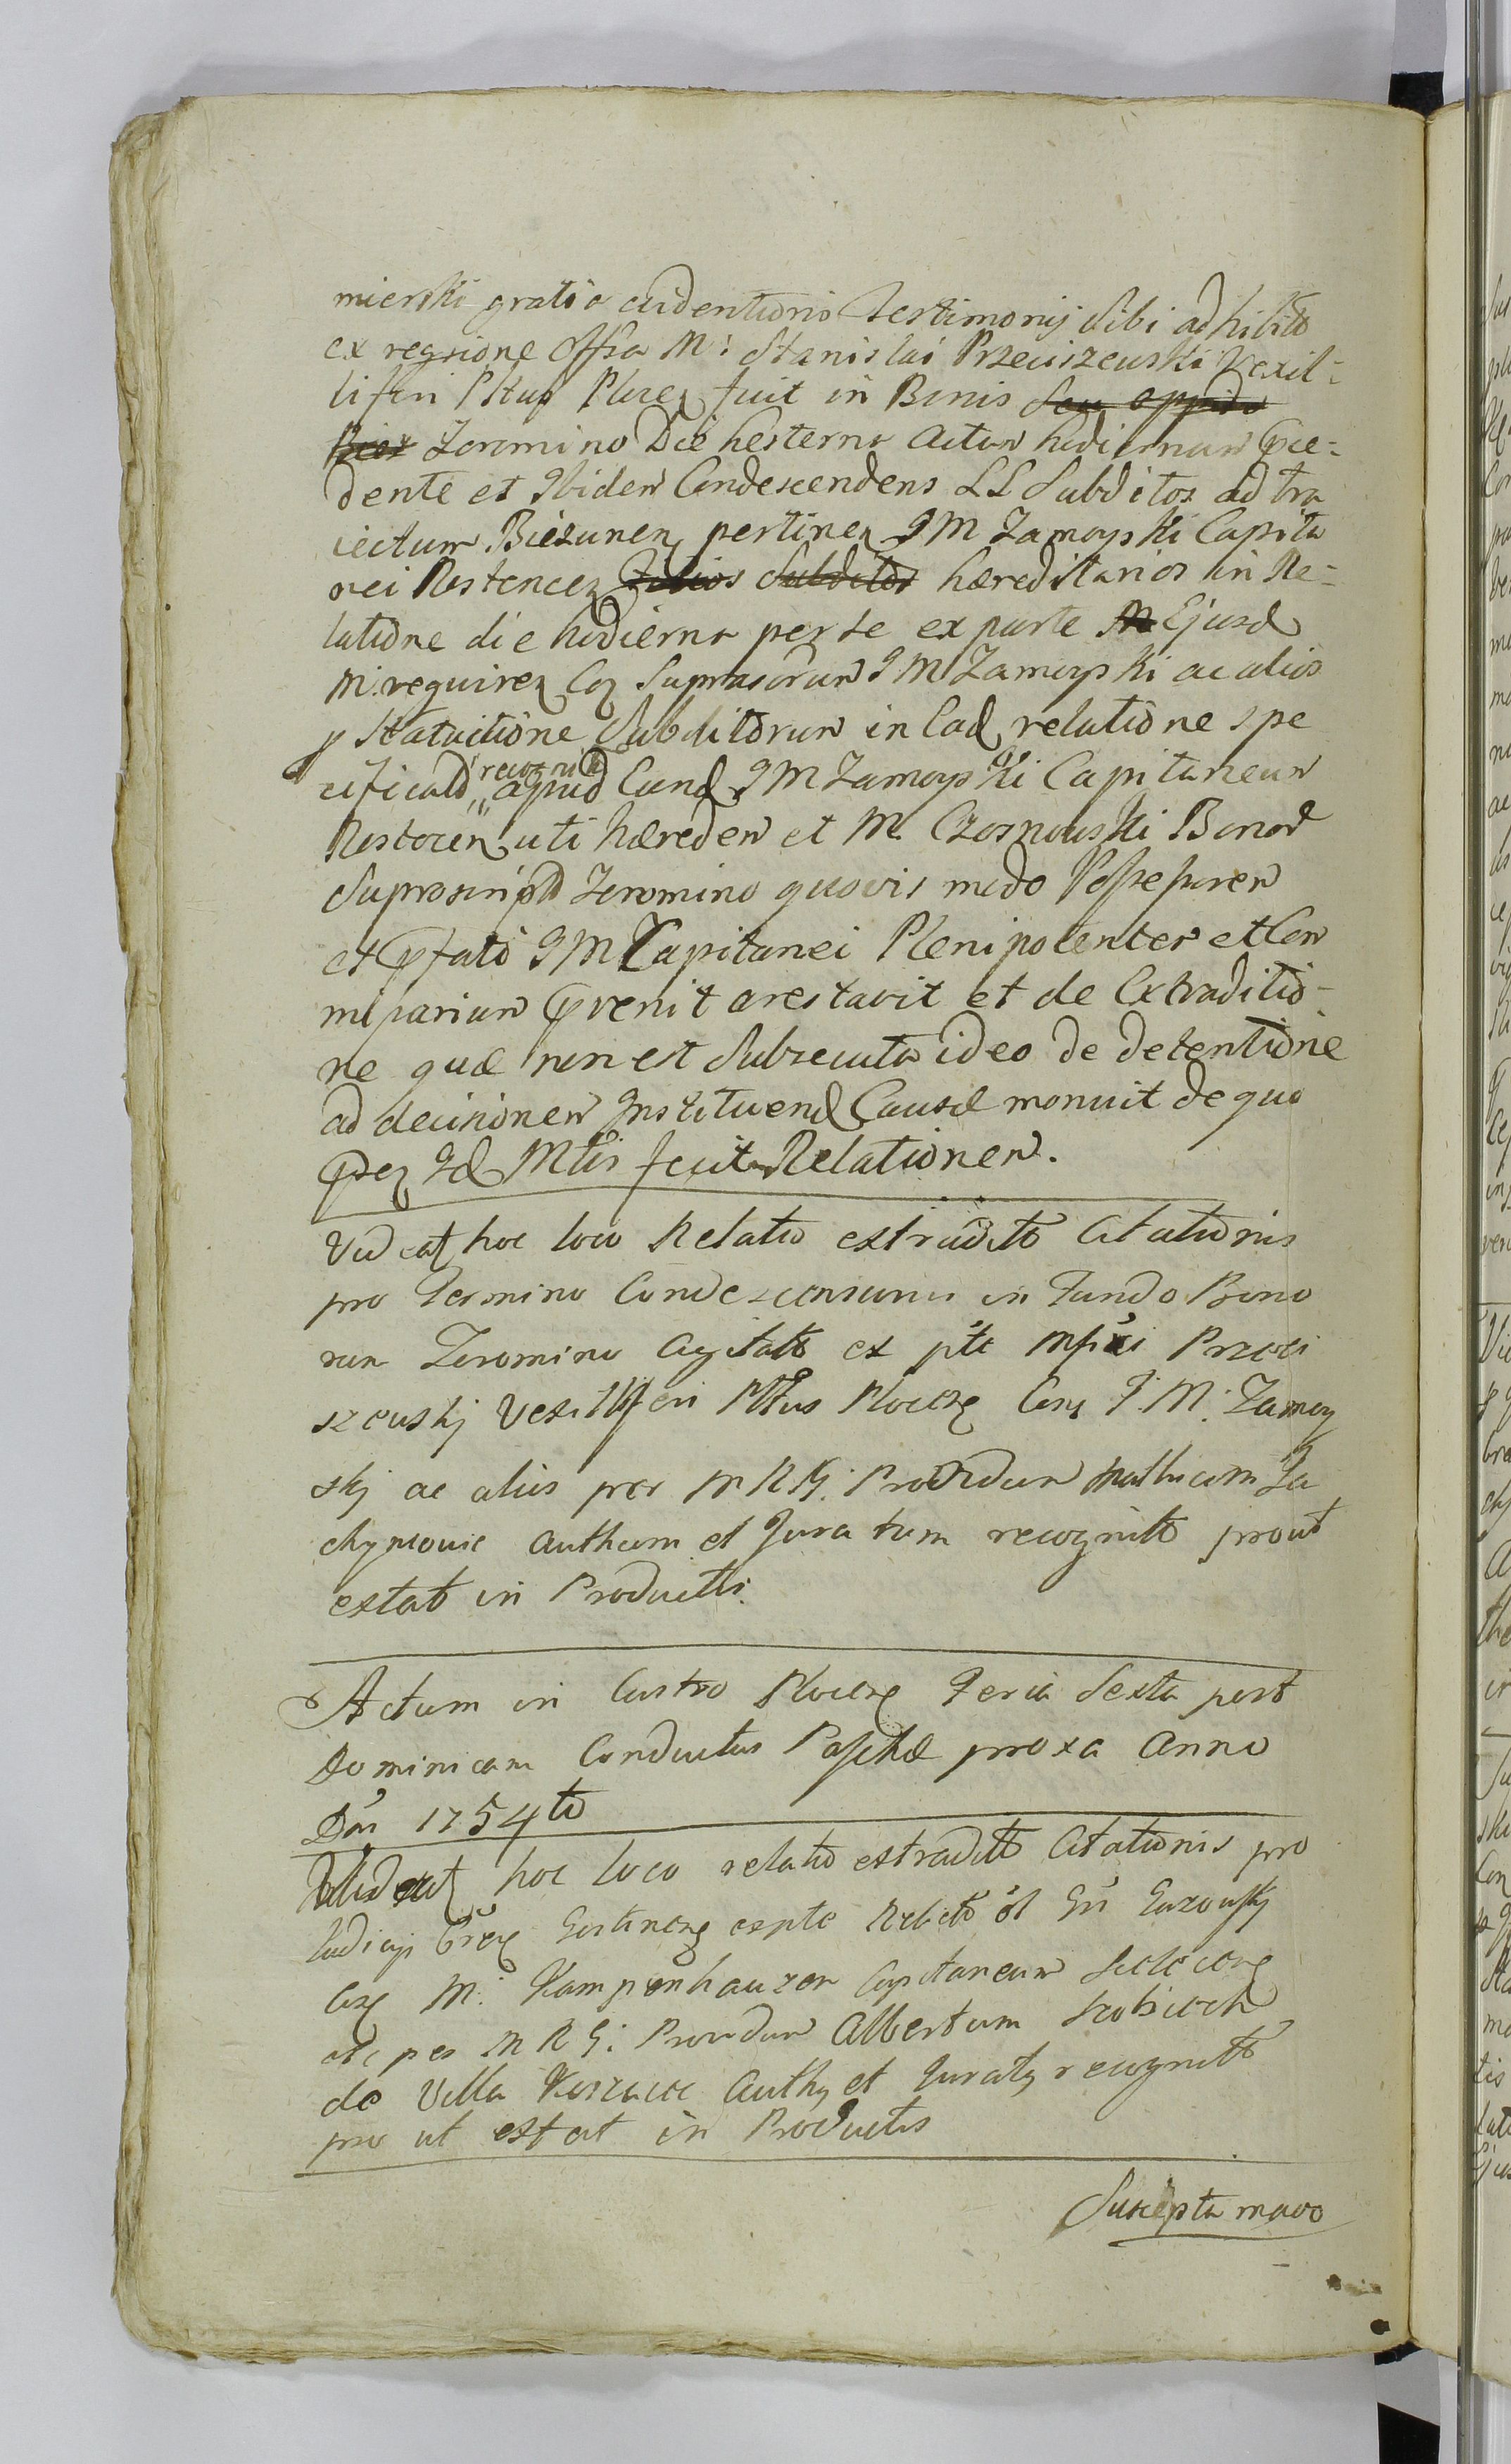 mierski gratia evidentioris Testimonij sibi adhibito
ex regsione Offsa M: Stanislai Przeciszewski Vexil-
liferi Pltus Plocen fuit in Bonis seu oppido
Bież Zeromino Die hesterna Actum hodiernum Prae-
dente et Ibidem Condescendens LL Subditos ad tra
iectum Bieżunen pertinen IM Zamoyski Capita
nei Rostencen hæreditarios in Re-
latione die hodierna per se ex parte Ejusd
M: requiren Con Suprasorum IM Zamoyski ac alios
p Statuitione Subditorum in Ead relatione spe
cificatos recognit apud Eund IM Zamoyski Capitaneum
Rostocen uti hæredem et M. Czosnowski Bonor
Suprascript Zeromino quovis modo Possessorem
et Pfati IM Capitanei Plenipotentem et Com
missarium Pvenit arestavit et de Extraditio-
ne quæ non est Subsecuta ideo de detentione
ad decisionem Instituend Causæ monuit de quo
Psen Id Mtis fecit Relationem.
Videat hoc loco Relatio extradit Citationis
pro Termino Condescensionis in Fundo Bono
rum Zeromino Agitato ex pte Mfici Przeci
szewskj Vexilliferi Pltus Plocen Con I. M. Zamoy
skj ac alios per M R G: Providum Matheum Ja
chymowic Authum et Juratum recognit prout
extat in Productis.
Actum in Castro Plocen Feria Sexta post
Dominicam Conductus Paschæ proxa Anno
Dni 1754to
Videat hoc loco relatio extradit Citationis pro
Iudicijs Gostinen ex pte
Con M: Kampenhauzen Capitaneum
etc per M R G: Providum Albertum
de Villa Authen et Juratum recognit
pro ut extat in Productis
Suscepta mavo